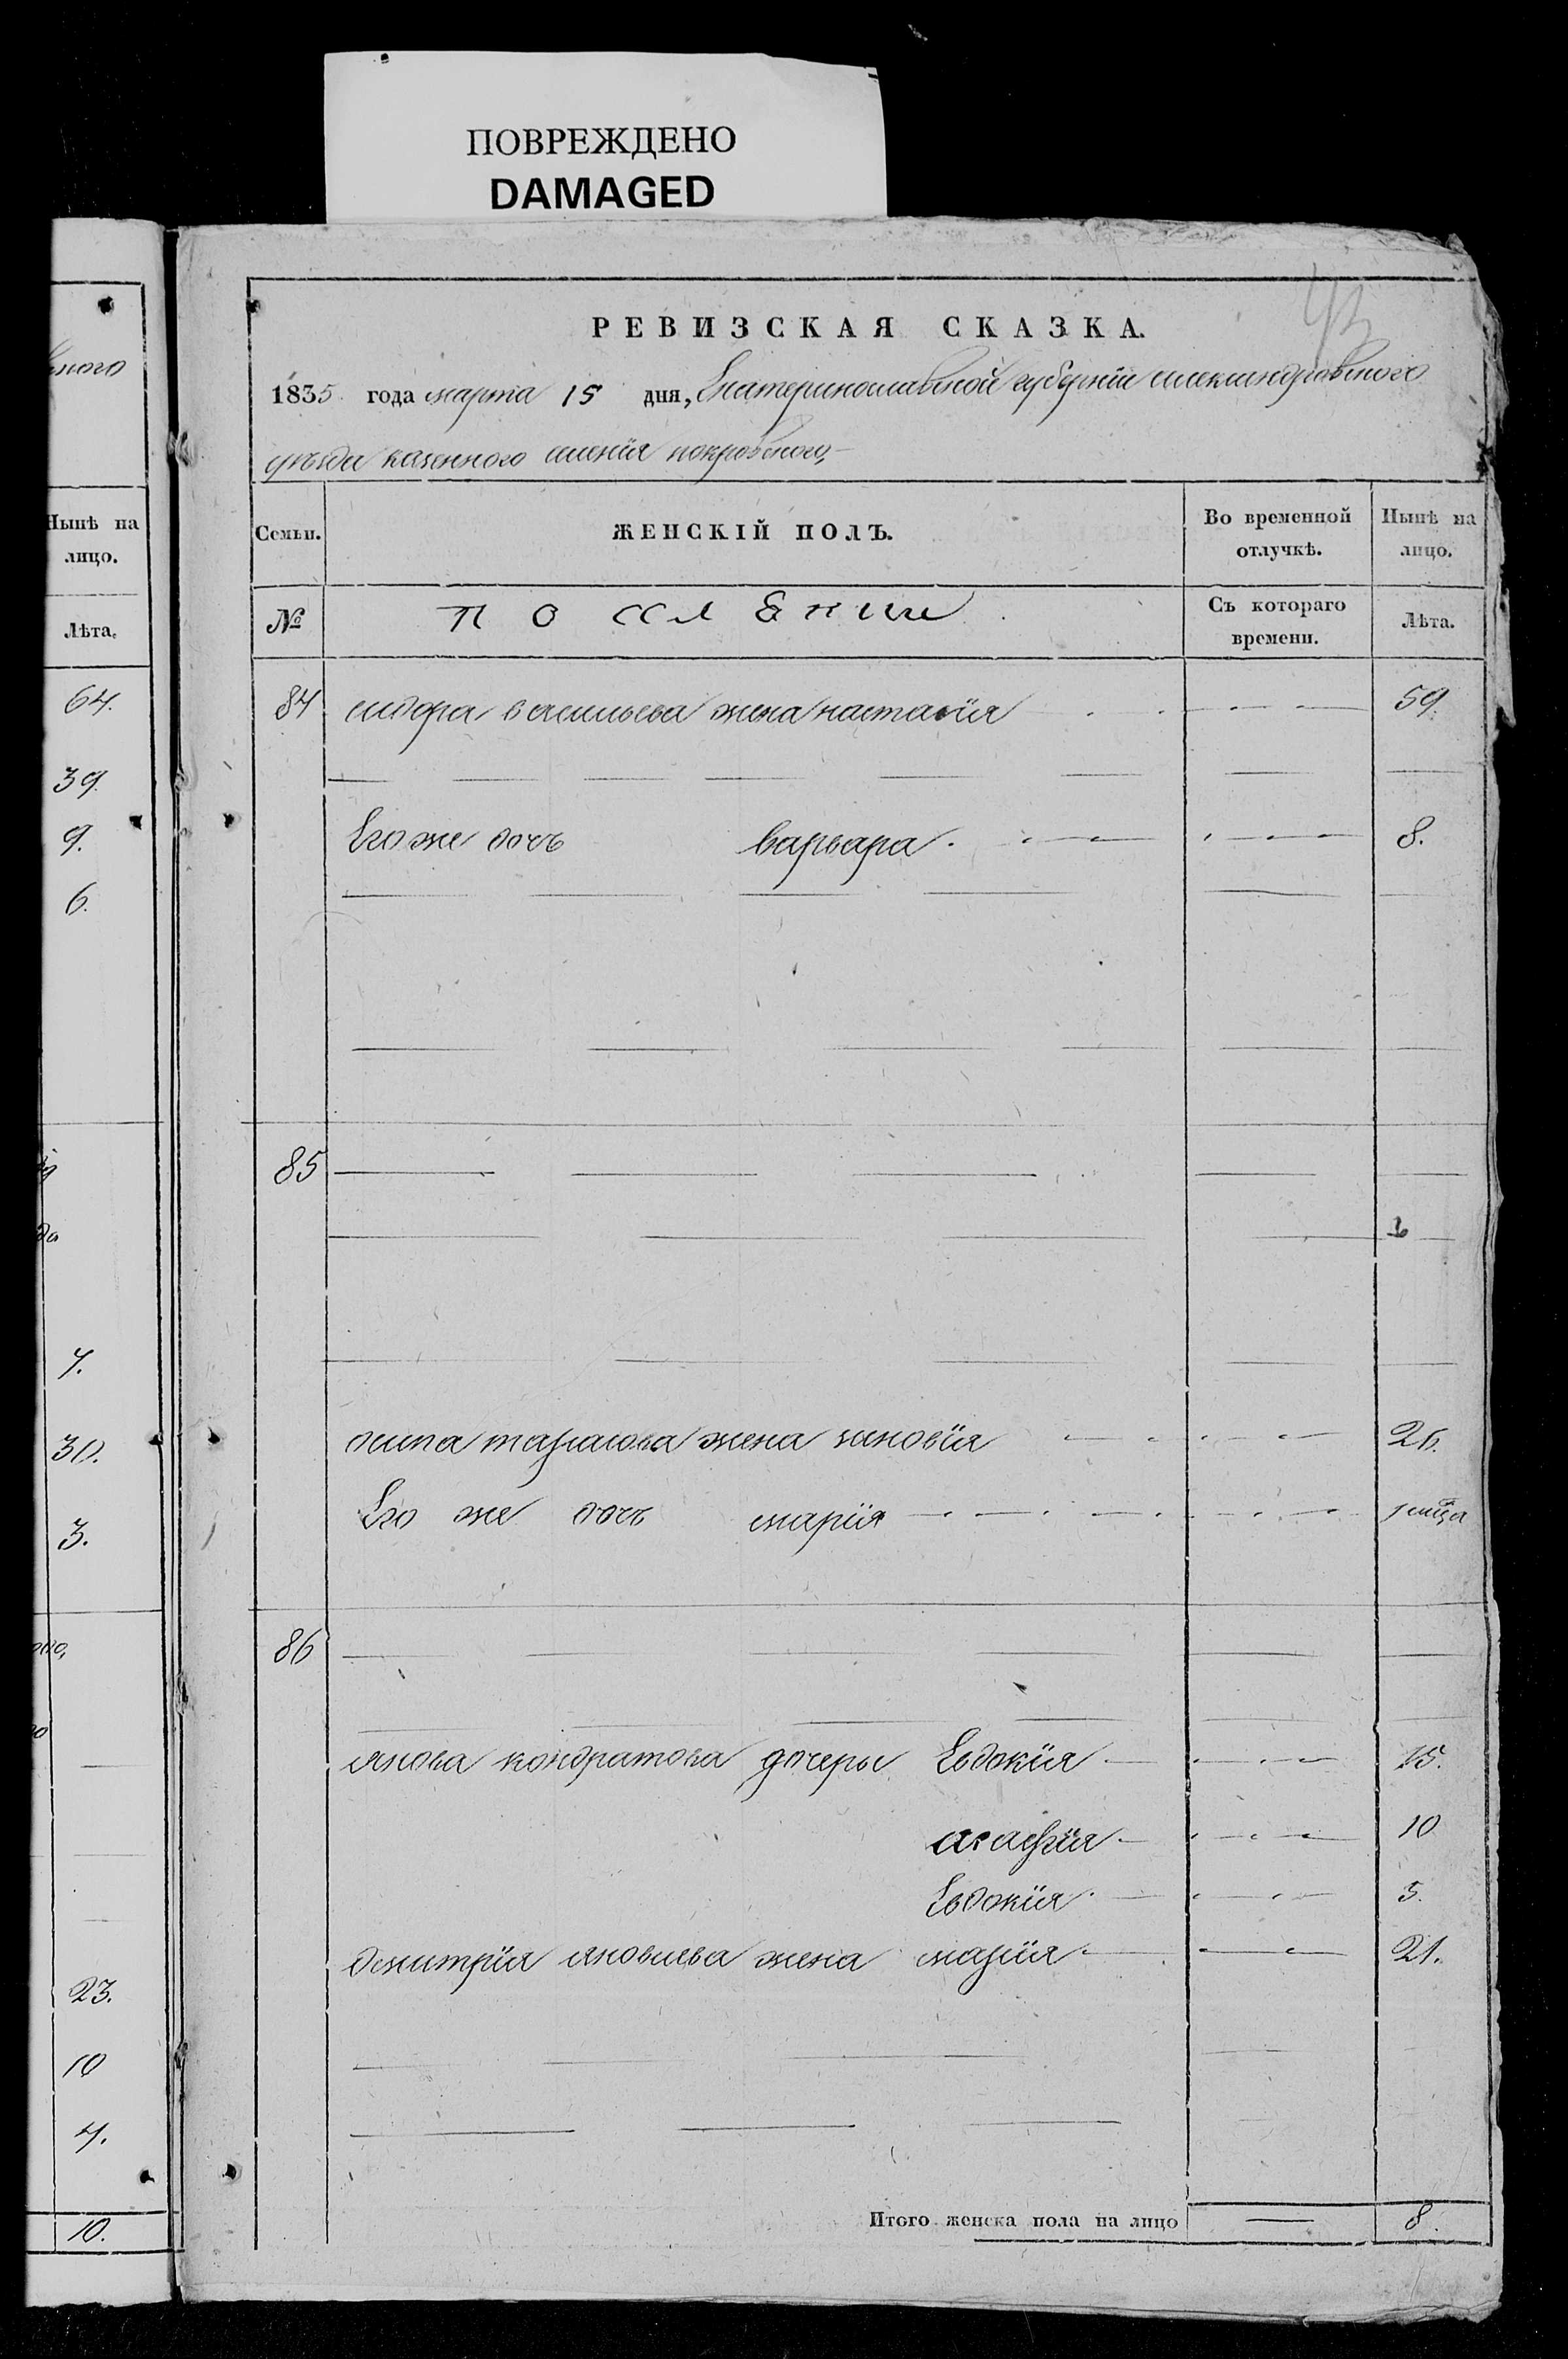 ПОВРЕЖДЕНО
DAMAGED
РЕВИЗСКАЯ СКАЗКА.
1835 года марта 15 дня, Екатеринославской губернии александровского
уезда казенного имения покровского,
Семьи.
ЖЕНСКІЙ ПОЛЪ.
Во временной отлучкѣ.
Нынѣ на лицо.
№
поселяние
Съ котораго времени.
Лѣта.
84 сидора васильева жена настасїя 59.
Его же дочь варвара 8.
85
осипа тарасова жена зиновїя 26.
Его же дочь марїя
86
якова кондратова дочеры Евдокїя 15.
агафїя 10
Евдокїя 5.
дмитрїя яковлева жена марїя 21.
Итого женска пола на лицо 8.
Нынѣ на
лицо.
Лѣта.
64.
39.
9.
6.
7.
30.
3.
23.
10
4.
10.